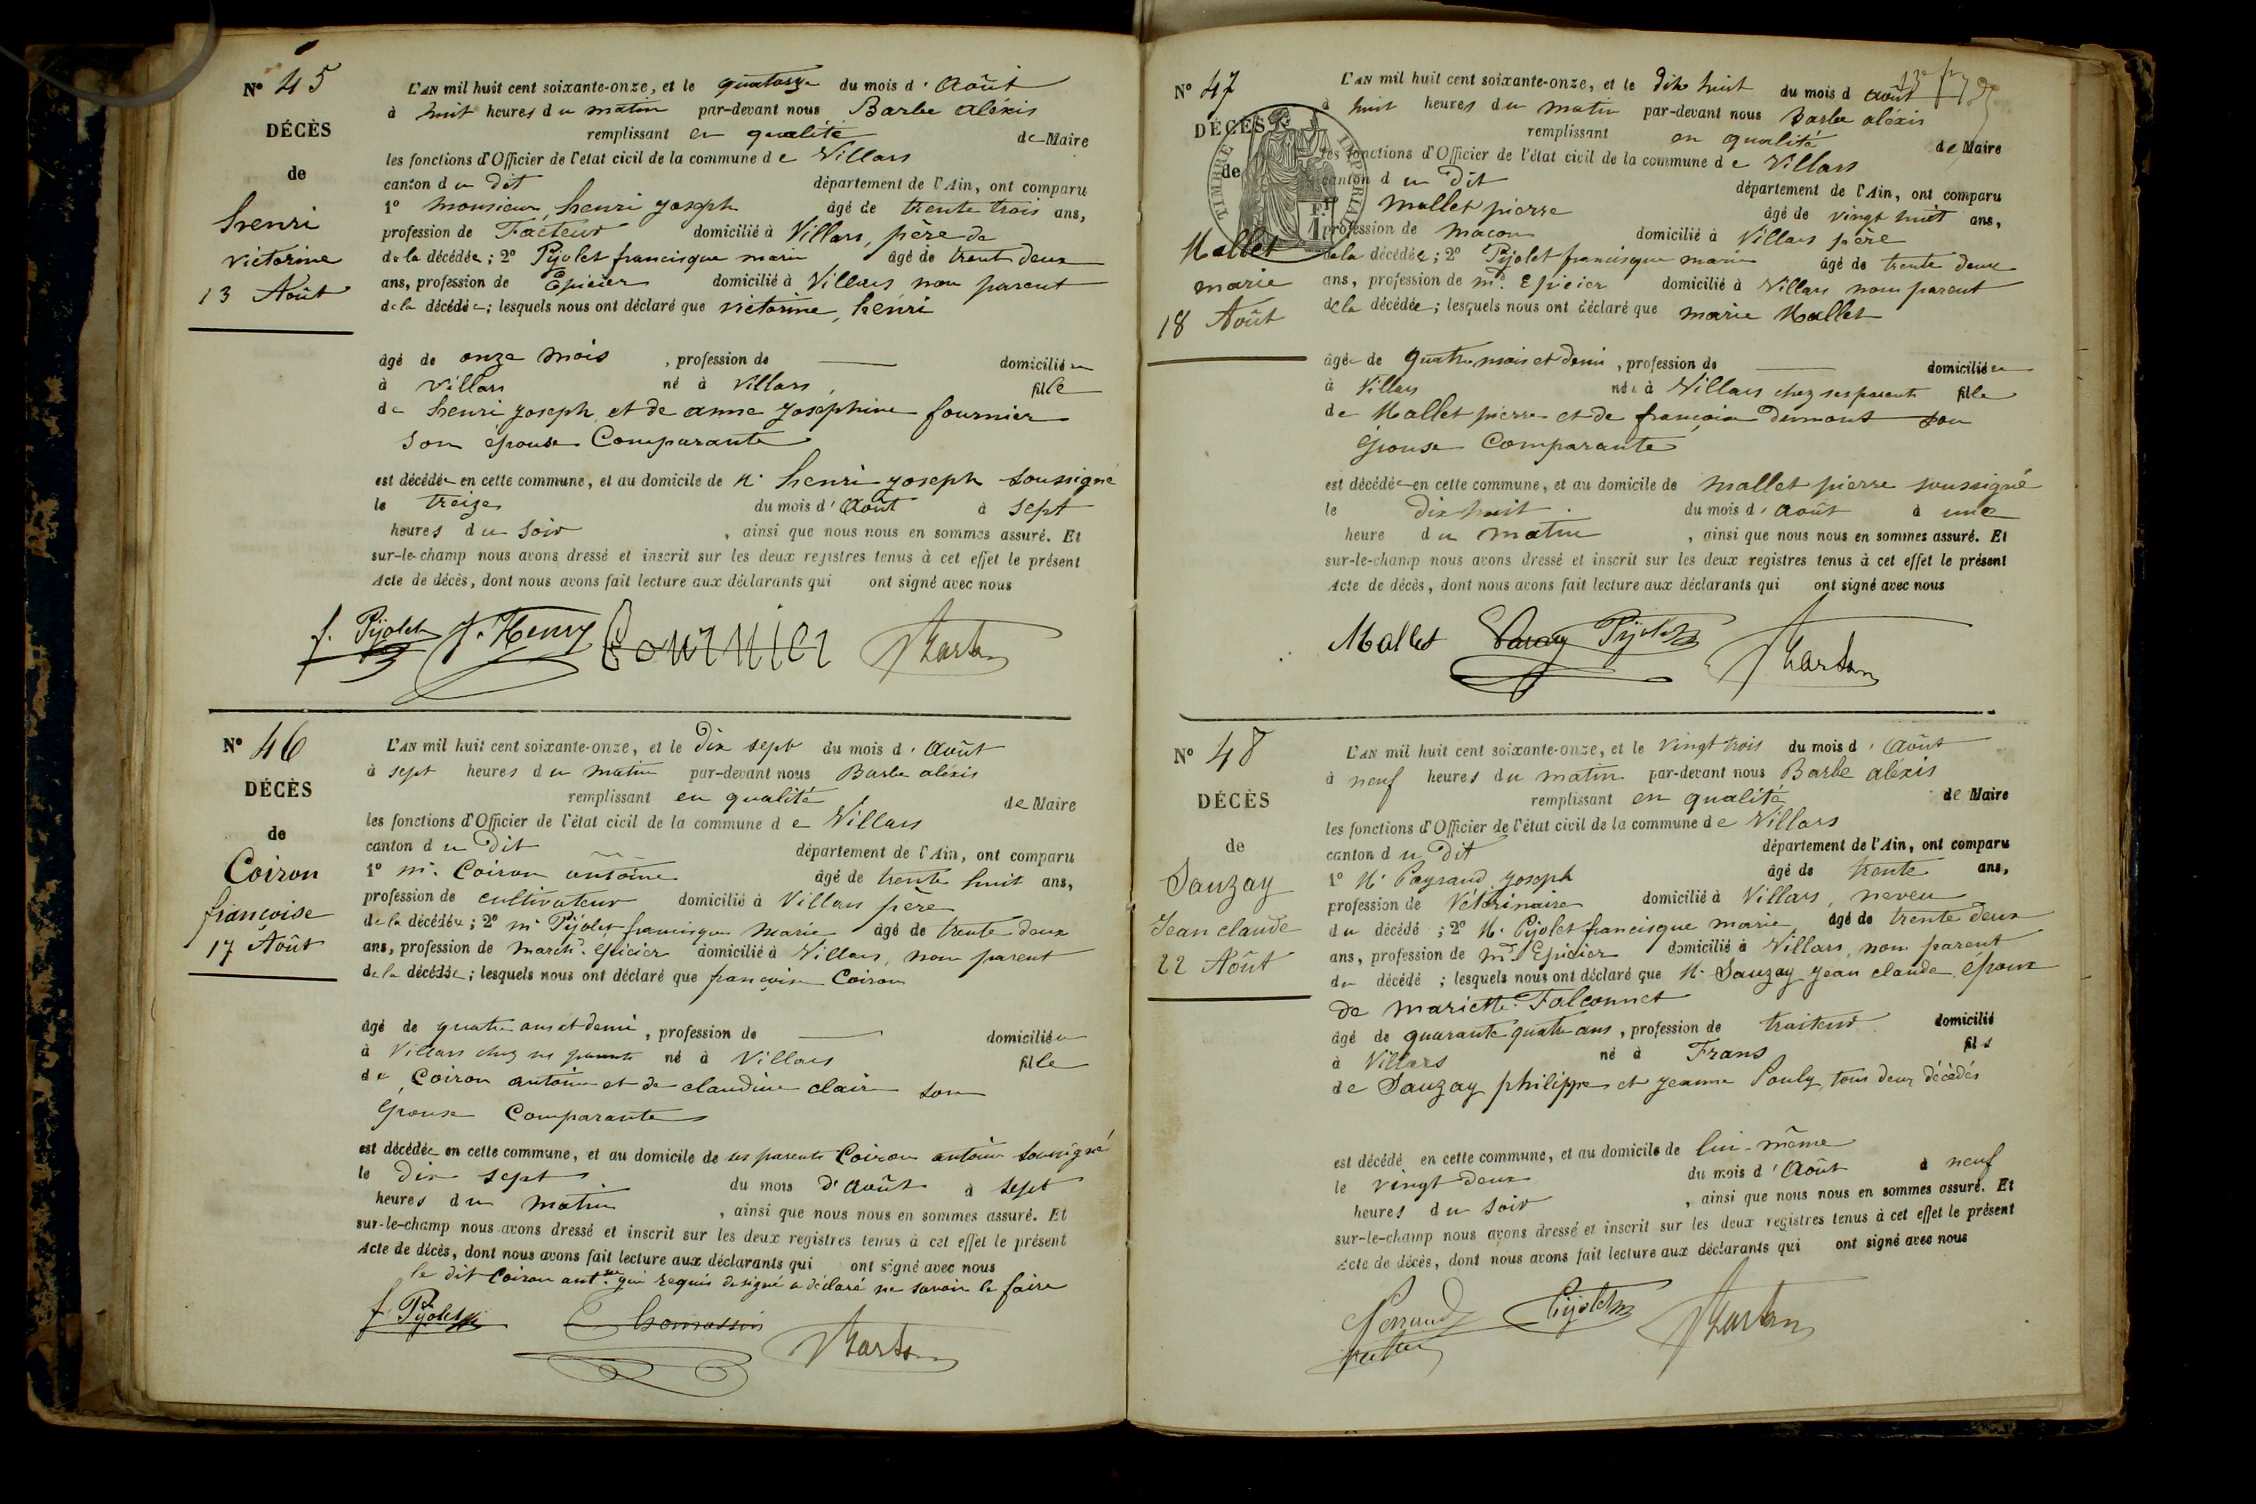 N° 45
DÉCÈS
de
henri
victorine
13 Août
L'AN mil huit cent soixante-onze, et le quatorze du mois d'Août
à huit heures du matin par-devant nous Barbe aléxis
remplissant en qualité de Maire
les fonctions d'Officier de l'état civil de la commune de Villars
canton du dit département de l'Ain, ont comparu
1° monsieur henri joseph âgé de trente trois ans,
profession de Facteur domicilié à Villars, père de
de la décédée; 2° Pijolet francisque marie âgé de trent deux
ans, profession de Epicier domicilié à Villars non parent
de la décédée; lesquels nous ont déclaré que victorine henri
âgé de onze mois, profession de domiciliée
à villars né à villars, fille
de henri joseph et de anne josephine fournier
son épouse Comparante
est décédée en cette commune, et au domicile de M. henri joseph soussigné
le treize du mois d'Août à sept
heures du soir, ainsi que nous nous en sommes assuré. Et
sur-le-champ nous avons dressé et inscrit sur les deux registres tenus à cet effet le présent
Acte de décès, dont nous avons fait lecture aux déclarants qui ont signé avec nous
f. Pijolet J. Henry Fournier
N° 46
DÉCÈS
de
Coiron
françoise
17 Août
L'AN mil huit cent soixante-onze, et le dix sept du mois d'Août
à sept heures du matin par-devant nous Barbe aléxis
remplissant en qualité de Maire
les fonctions d'Officier de l'état civil de la commune de Villars
canton du Dit département de l'Ain, ont comparu
1° mr. Coiron antoine âgé de trente huit ans,
profession de cultivateur domicilié à Villars père
de la décédée; 2° mr Pijolet francisque marie âgé de trente deux
ans, profession de march. épicier domicilié à Villars, non parent
de la décédée; lesquels nous ont déclaré que françoise Coiron
âgé de quatre ans et demi, profession de domiciliée
à Villars chez ses parents né à Villars fille
de Coiron antoine et de claudine clair son
épouse Comparante
est décédée en cette commune, et au domicile de ses parents Coiron antoine soussigné
le dix sept du mois d'Août à sept
heures du matin, ainsi que nous nous en sommes assuré. Et
sur-le-champ nous avons dressé et inscrit sur les deux registres tenus à cet effet le présent
Acte de décès, dont nous avons fait lecture aux déclarants qui ont signé avec nous
le dit Coiron antne qui requis de signé a déclaré ne savoir le faire
f. Pijolet Chomassin
N° 47
DÉCÈS
de
Mallet
marie
18 Août
TIMBRE IMPÉRIAL
L'AN mil huit cent soixante-onze, et le dix huit du mois d août
à huit heures du matin par-devant nous Barbe aléxis
remplissant en qualité de Maire
les fonctions d'Officier de l'état civil de la commune de Villars
canton du Dit département de l'Ain, ont comparu
1° mallet pierre âgé de vingt huit ans,
profession de macon domicilié à Villars père
de la décédée; 2° Pijolet francisque marie âgé de trente deux
ans, profession de md. Epicier domicilié à Villars non parent
de la décédée; lesquels nous ont déclaré que marie Mallet
âgée de quatre mois et demi, profession de domiciliée
à Villars née à Villars chez ses parents fille
de Mallet pierre et de françoise dumont son
épouse Comparante
est décédée en cette commune, et au domicile de mallet pierre soussigné
le dix huit du mois d'Août à une
heure du matin, ainsi que nous nous en sommes assuré. Et
sur-le-champ nous avons dressé et inscrit sur les deux registres tenus à cet effet le présent
Acte de décès, dont nous avons fait lecture aux déclarants qui ont signé avec nous
Mallet Pijolet
N° 48
DÉCÈS
de
Sauzay
Jean claude
22 Août
L'AN mil huit cent soixante-onze, et le vingt trois du mois d'Août
à neuf heures du matin par-devant nous Barbe aléxis
remplissant en qualité de Maire
les fonctions d'Officier de l'état civil de la commune de Villars
canton du Dit département de l'Ain, ont comparu
1° M. joseph âgé de trente ans,
profession de Vétérinaire domicilié à Villars, neveu
du décédé; 2° M. Pijolet francisque marie âgé de trente deux
ans, profession de md Epicier domicilié à Villars, non parent
du décédé; lesquels nous ont déclaré que M. Sauzay jean claude, époux
de mariette Falconnet
âgé de quarante quatre ans, profession de traiteur domicilié
à Villars né à Frans fils
de Sauzay philippe et jeanne Pouly, tous deux décédés
est décédé en cette commune, et au domicile de lui-même
le vingt deux du mois d'Août à neuf
heures du soir, ainsi que nous nous en sommes assuré. Et
sur-le-champ nous avons dressé et inscrit sur les deux registres tenus à cet effet le présent
Acte de décès, dont nous avons fait lecture aux déclarants qui ont signé avec nous
Pijolet